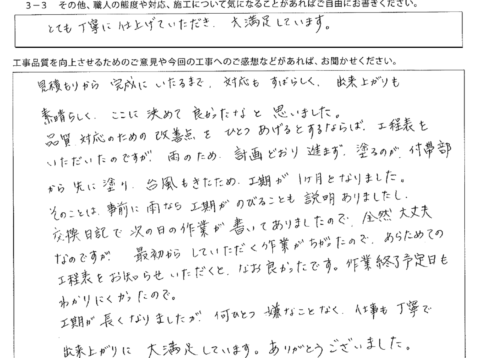 3－3 その他、職人の態度や対応、施工について気になることがあればご自由にお書きください。
とても丁寧に仕上げていただき、大満足しています。
工事品質を向上させるためのご意見や今回の工事へのご感想などがあれば、お聞かせください。
見積もりから完成にいたるまで、対応もすばらしく、出来上がりも
素晴らしく、ここに決めて良かったなと思いました。
品質対応のための改善点をひとつあげるとするならば、工程表を
いただいたのですが、雨のため、計画どおり進まず、塗るのが、付帯部
から先に塗り、台風もきたため、工期が1ヶ月となりました。
そのことは、事前に雨なら工期がのびることも説明ありましたし、
交換日記で次の日の作業が書いてありましたので、全然大丈夫
なのですが、最初からしていただく作業がちがったので、あらためての
工程表をお知らせいただくと、なお良かったです。作業終了予定日も
わかりにくかったので。
工期が長くなりましたが、何ひとつ嫌なことなく、仕事も丁寧で
出来上がりに大満足しています。ありがとうございました。